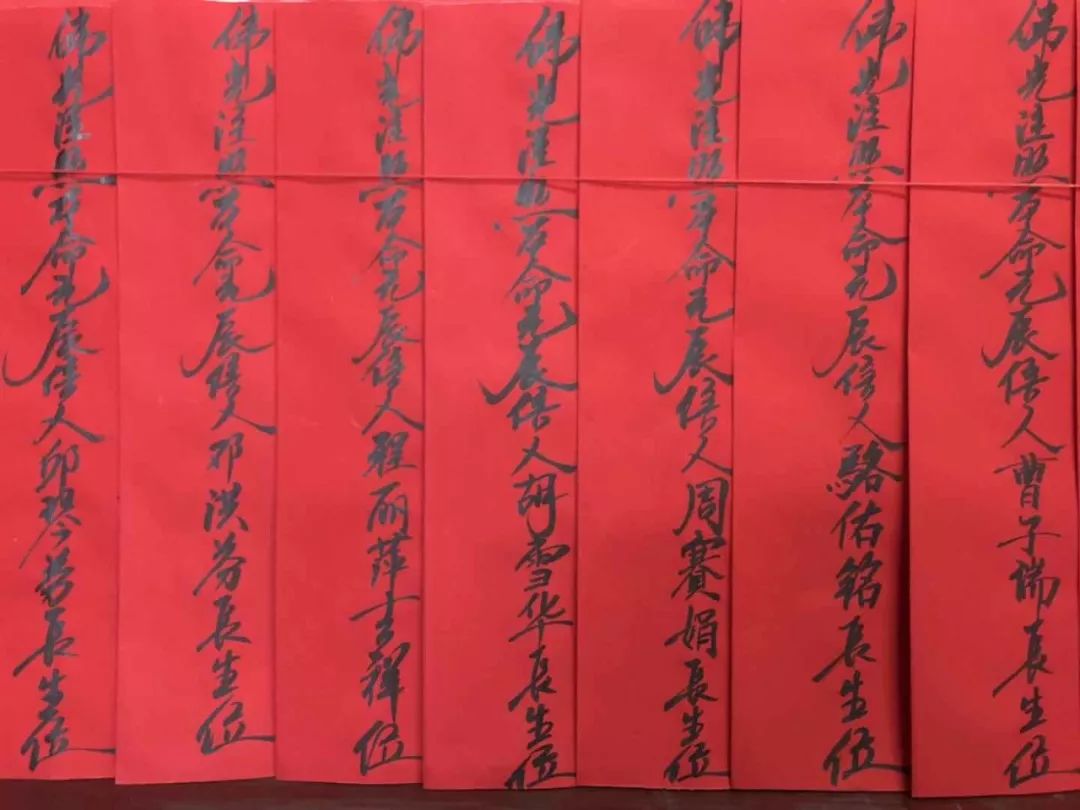 佛光注照本命元辰信人曹子瑞長生位
佛光注照本命元辰信人駱佑銘長生位
佛光注照本命元辰信人周賽娟長生位
佛光注照本命元辰信人胡雪华長生位
佛光注照本命元辰信人程丽萍吉祥位
佛光注照本命元辰信人邓洪芬長生位
佛光注照本命元辰信人邱琴芳長生位